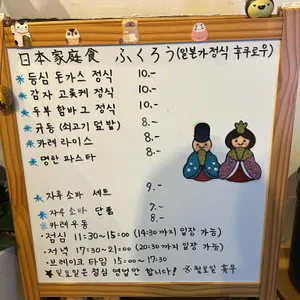 日本家庭食 ふくろう(일본가정식 후쿠로우)
* 등심 돈가스 정식 10.-
* 감자 고로케 정식 10.-
* 두부 함바그 정식 10.-
* 규동 (쇠고기 덮밥) 8.-
* 카레라이스 8.-
* 명란 파스타 8.-
* 자루소바 세트 9.-
* 자루소바 단품 7.-
* 카레우동 8.-
• 점심 11:30~15:00 (14:30까지 입장 가능)
• 저녁 17:30~21:00 (20:30까지 입장 가능)
• 브레이크 타임 15:00~17:30
★ 일요일은 점심 영업만 합니다! ※ 월요일 휴무